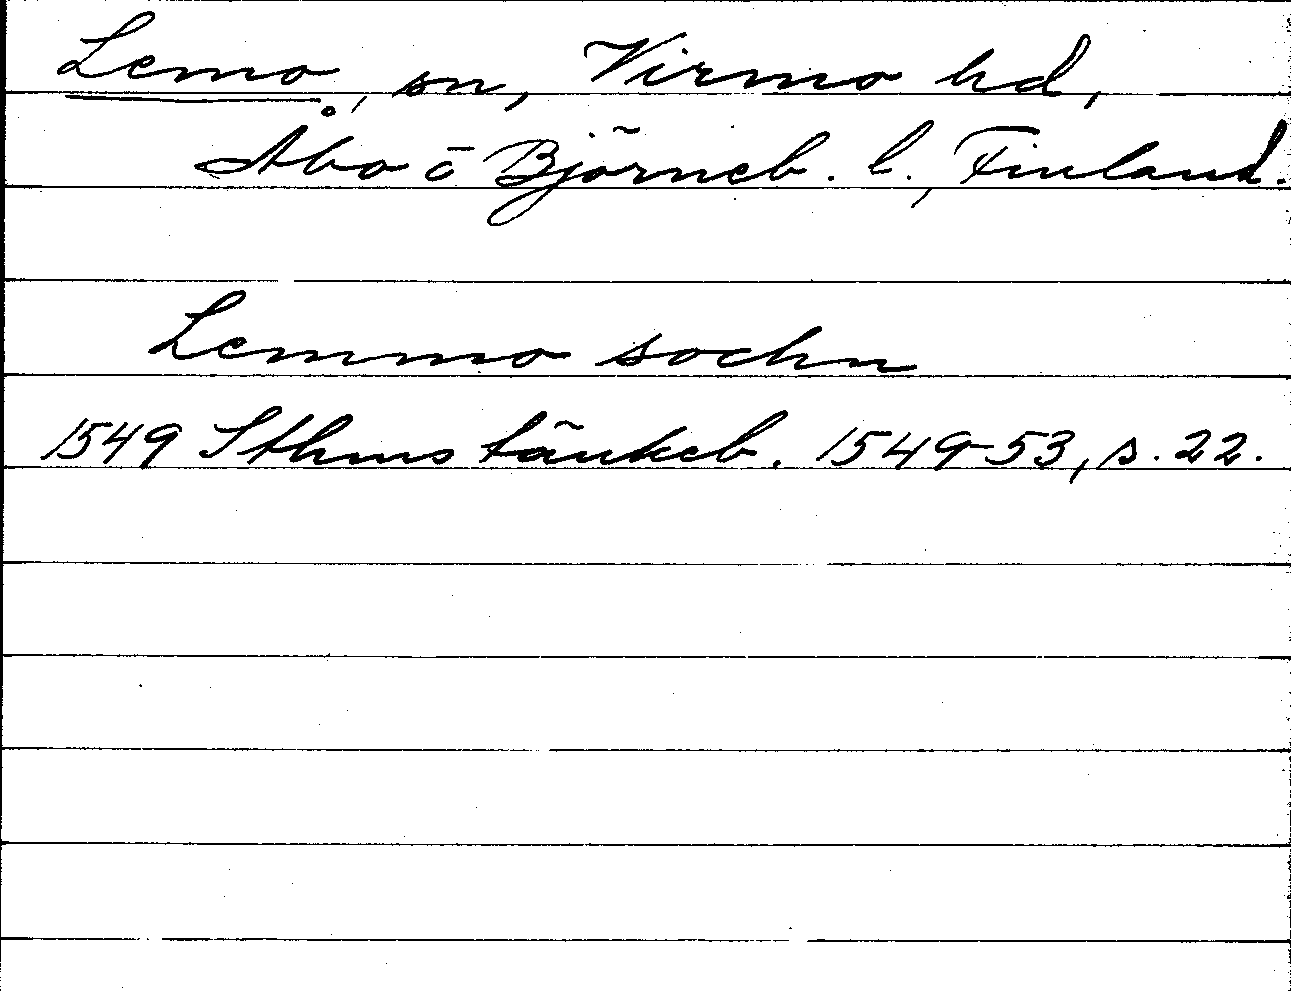 Lemo, sn, Virmo hd,
Åbo ō Björneb. l., Finland.
Lemmo sochn
1549 Sthms tänkeb. 1549-53, s. 22.